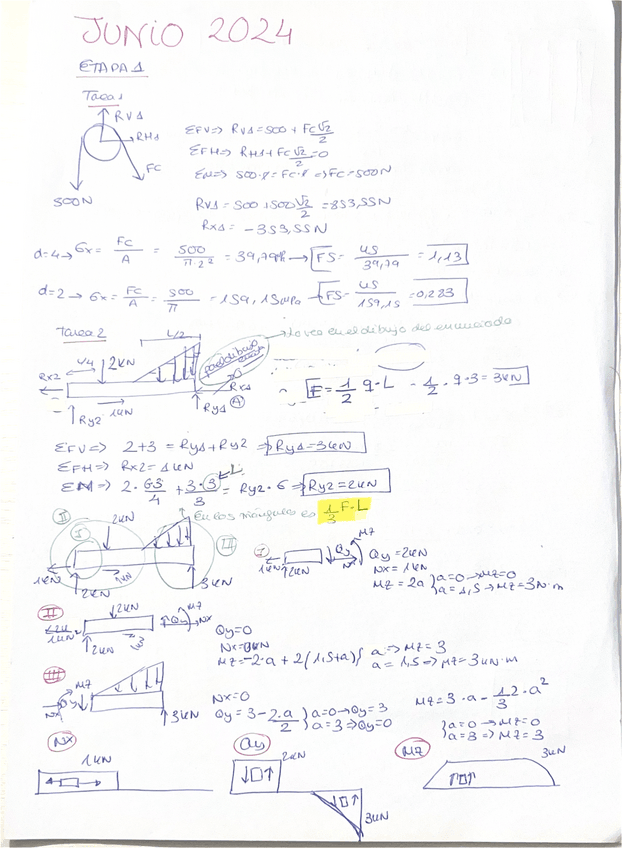 JUNIO 2024
ETAPA 1
Tarea 1
RV1
RH1
FC
500N
ΣFV => RV1 = 500 + FC √2/2
ΣFH => RH1 + FC √2/2 = 0
ΣM => 500·R = FC·R => FC = 500N
RV1 = 500 + 500 √2/2 = 853,55N
RX1 = -353,55N
d=4 → σx = FC/A = 500/π·2² = 39,79 → FS = 45/39,79 = 1,13
d=2 → σx = FC/A = 500/π = 159,15MPa FS = 45/159,15 = 0,283
Tarea 2
L/2
→ Lo veo en el dibujo del enunciado
L/4
2kN
Rx2
Ry2
1kN
Ry1
A
F = 1/2 q·L = 1/2 · q·3 = 3kN
ΣFV => 2+3 = Ry1 + Ry2 => Ry1 = 3kN
ΣFH => Rx2 = 1kN
ΣM => 2· /4 + 3·3/3 = Ry2·6 => Ry2 = 2kN
En los triángulos es 1/3 F·L
II
I
III
2kN
1kN
2kN
1kN
3kN
I
1kN
2kN
Qy
Nx
Mz
Qy = 2kN
Nx = 1kN
Mz = 2a } a=0 → Mz=0
a=1,5 → Mz=3kN·m
II
2kN
1kN
2kN
Qy
Nx
Mz
Qy = 0
Nx = 0kN
Mz = -2·a + 2(1,5+a) } a => Mz = 3
a = 1,5 => Mz = 3kN·m
III
Mz
Nx
Qy
3kN
Nx = 0
Qy = 3 - 2·a/2 } a=0 → Qy=3
a=3 => Qy=0
Mz = 3·a - 1/3 2·a²
} a=0 → Mz=0
a=3 => Mz=3
Nx
1kN
Qy
2kN
3kN
Mz
3kN